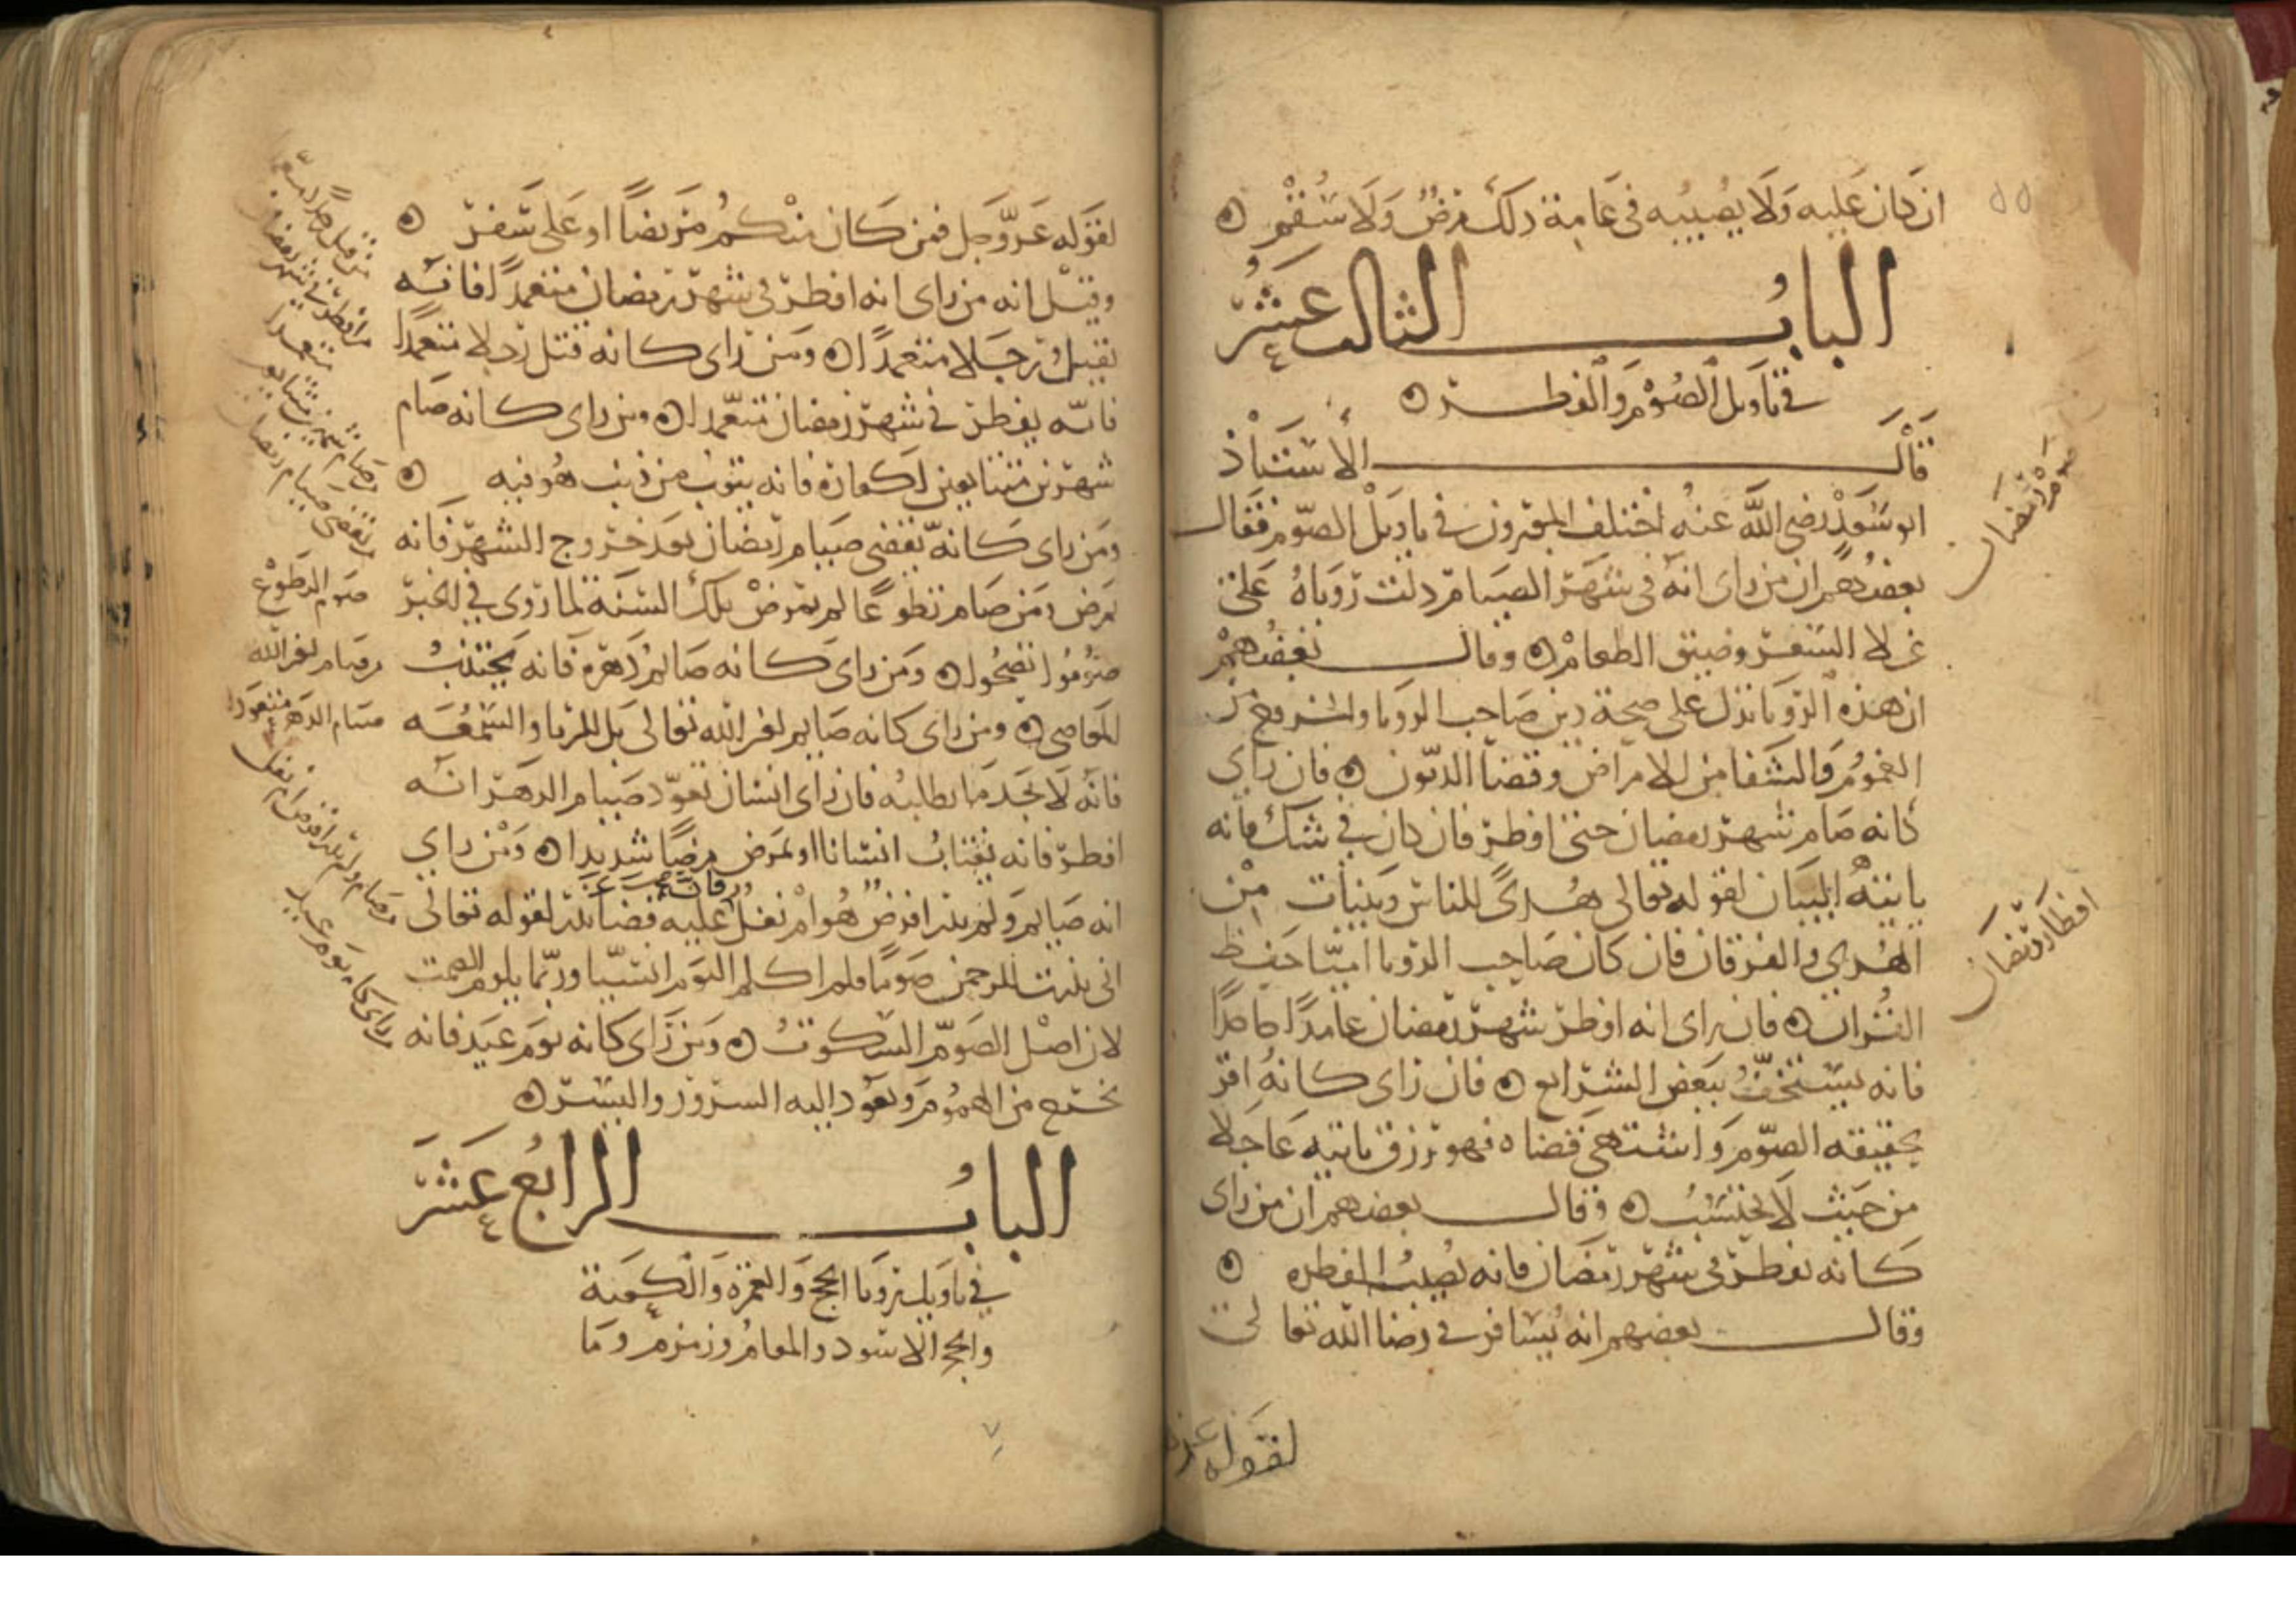 ان كان عليه ولا يصيبه في عامه ذلك مرض ولا سقم
الباب الثالث عشر
في تاويل الصوم والفطر
قال الاستاذ
ابو سعد رضي الله عنه اختلف المعبرون في تاويل الصوم فقال
بعضهم ان من راى انه في شهر الصيام دلت رؤياه على
غلا السعر وضيق الطعام وقال بعضهم
ان هذه الرؤيا تدل على صحة دين صاحب الرؤيا والخروج من
الغموم والشفا من الامراض وقضا الديون فان راى
كانه صام شهر رمضان حتى افطر فان كان في شك فانه
ياتيه البيان لقوله تعالى هدى للناس وبينات من
الهدى والفرقان فان كان صاحب الرؤيا اميا حفظ
القران فان راى انه افطر شهر رمضان عامدا جاحدا
فانه يستخف ببعض الشرايع فان راى كانه اقر
بحقيقة الصوم واشتهى قضاه فهو رزق ياتيه عاجلا
من حيث لا يحتسب وقال بعضهم ان من راى
كانه يفطر في شهر رمضان فانه يصيب الفطره
وقال بعضهم انه يسافر في رضا الله تعالى
لقوله عز
صوم رمضان
افطار رمضان
٥٥
لقوله عز وجل فمن كان منكم مريضا او على سفر
وقيل انه من راى انه افطر في شهر رمضان متعمدا فانه
يقتل رجلا متعمدا ومن راى كانه قتل رجلا متعمدا
فانه يفطر في شهر رمضان متعمدا ومن راى كانه صام
شهرين متتابعين لكفارة فانه يتوب من ذنب هو فيه
ومن راى كانه يقضي صيام رمضان بعد خروج الشهر فانه
يمرض ومن صام تطوعا لم يمرض تلك السنة لما روي في الخبر
صوموا تصحوا ومن راى كانه صايم دهره فانه يجتنب
المعاصي ومن راى كانه صايم لغير الله تعالى بل للريا والسمعه
فانه لا يجد ما يطلبه فان راى انسان تعود صيام الدهر انه
افطر فانه يغتاب انسانا او يمرض مرضا شديدا ومن راى
انه صايم ولم يدر افرض هو ام نفل فان عليه قضا نذر لقوله تعالى
اني نذرت للرحمن صوما فلن اكلم اليوم انسيا وربما يلزم الصمت
لان اصل الصوم السكوت ومن راى كانه يوم عيد فانه
يخرج من الهموم ويعود اليه السرور واليسر
الباب الرابع عشر
في تاويل رؤيا الحج والعمرة والكعبة
والحجر الاسود والمقام وزمزم وما
من افطر في شهر رمضان
متعمدا
صوم التطوع
من صام لغير الله
صيام الدهر